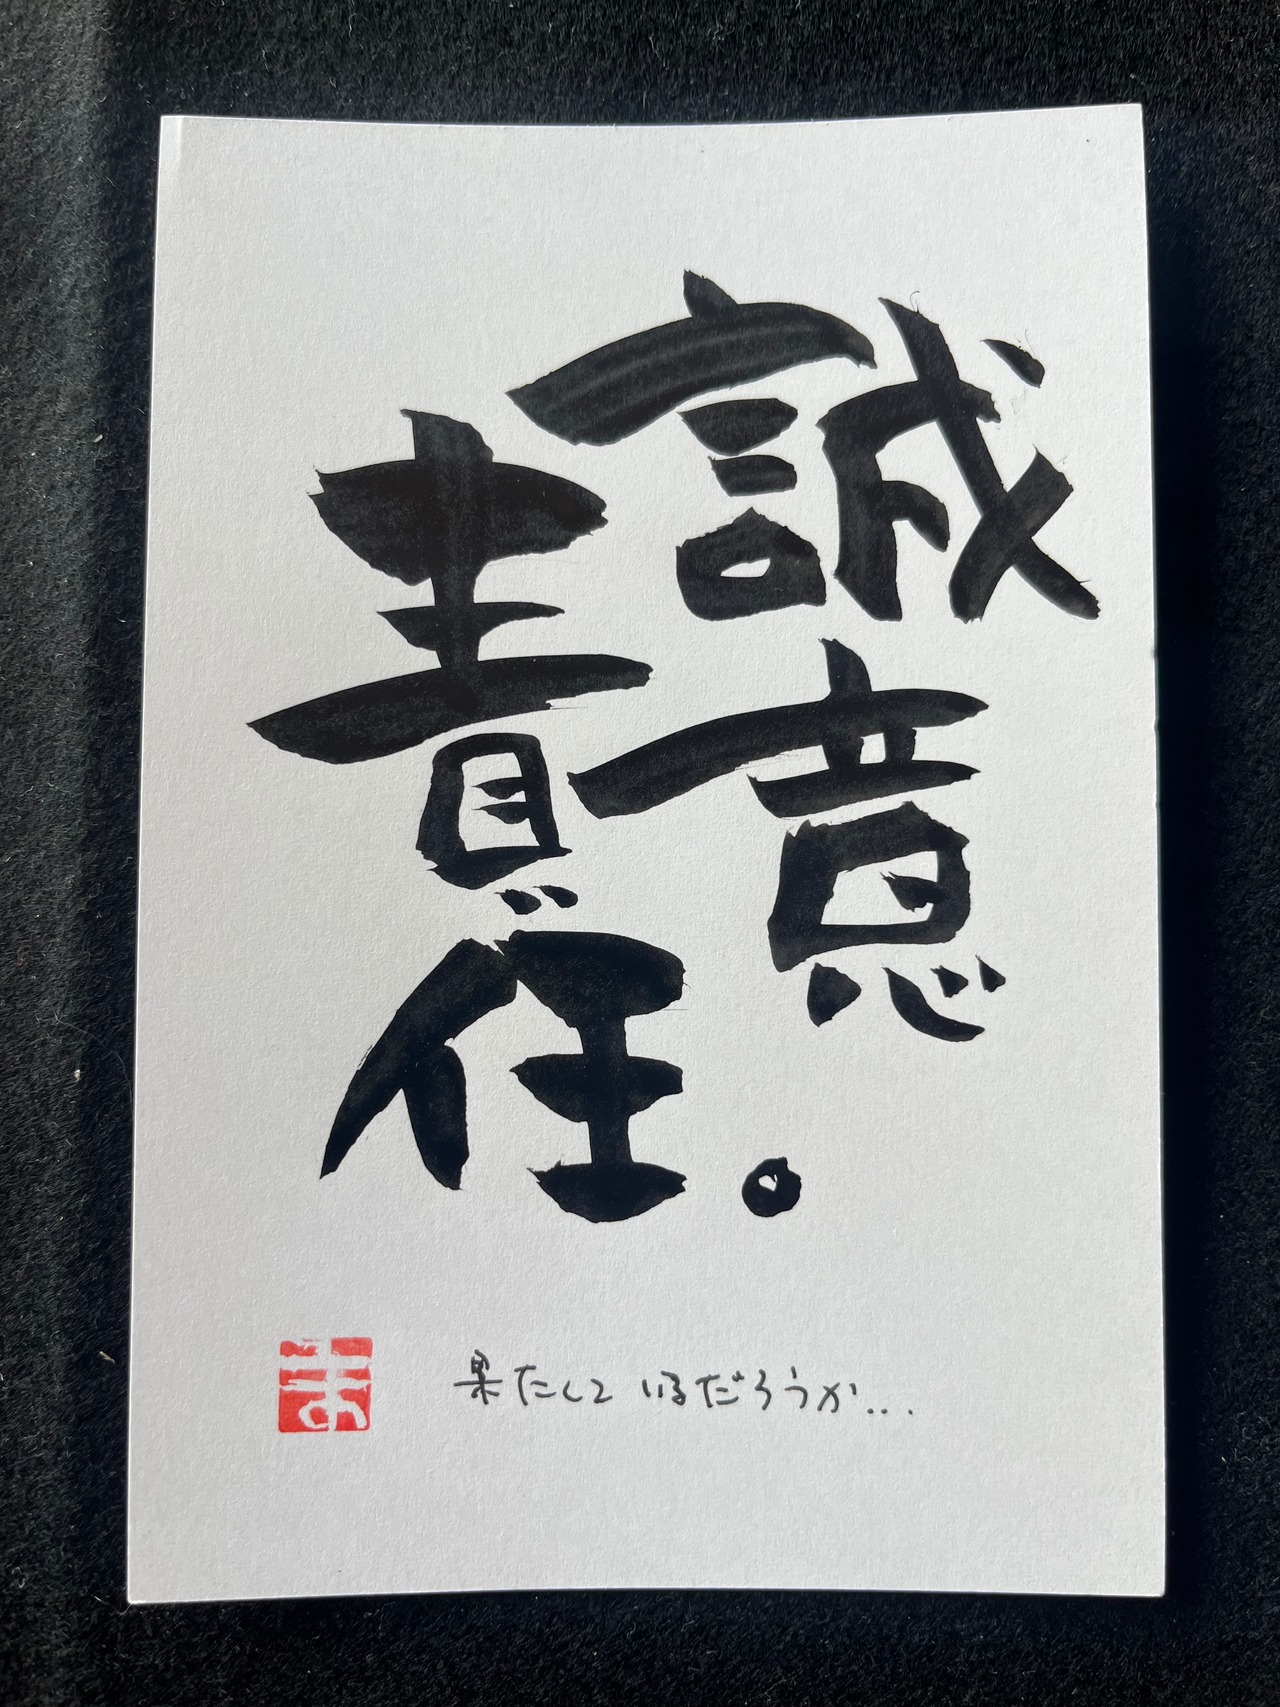 誠意
責任。
果たしているだろうか...
ま